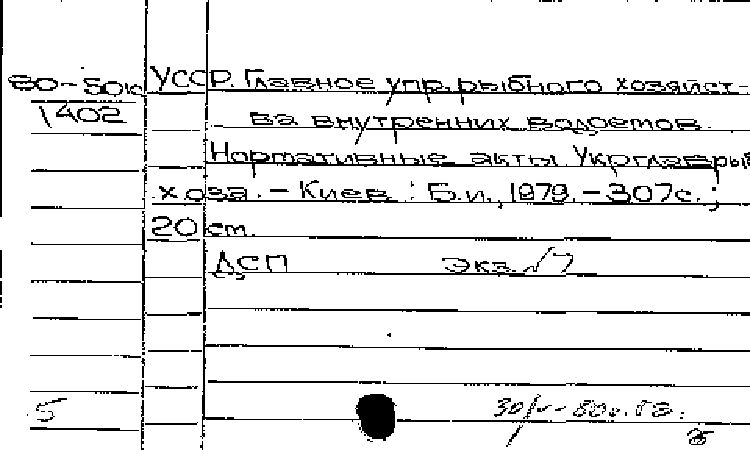 80-50ю УССР. Главное упр. рыбного хозяйст-
1402 ва внутренних водоемов.
Нормативные акты Укрглаврыб
хоза. - Киев : Б.и., 1979. - 307с. ;
20 см.
ДСП Экз. №
5